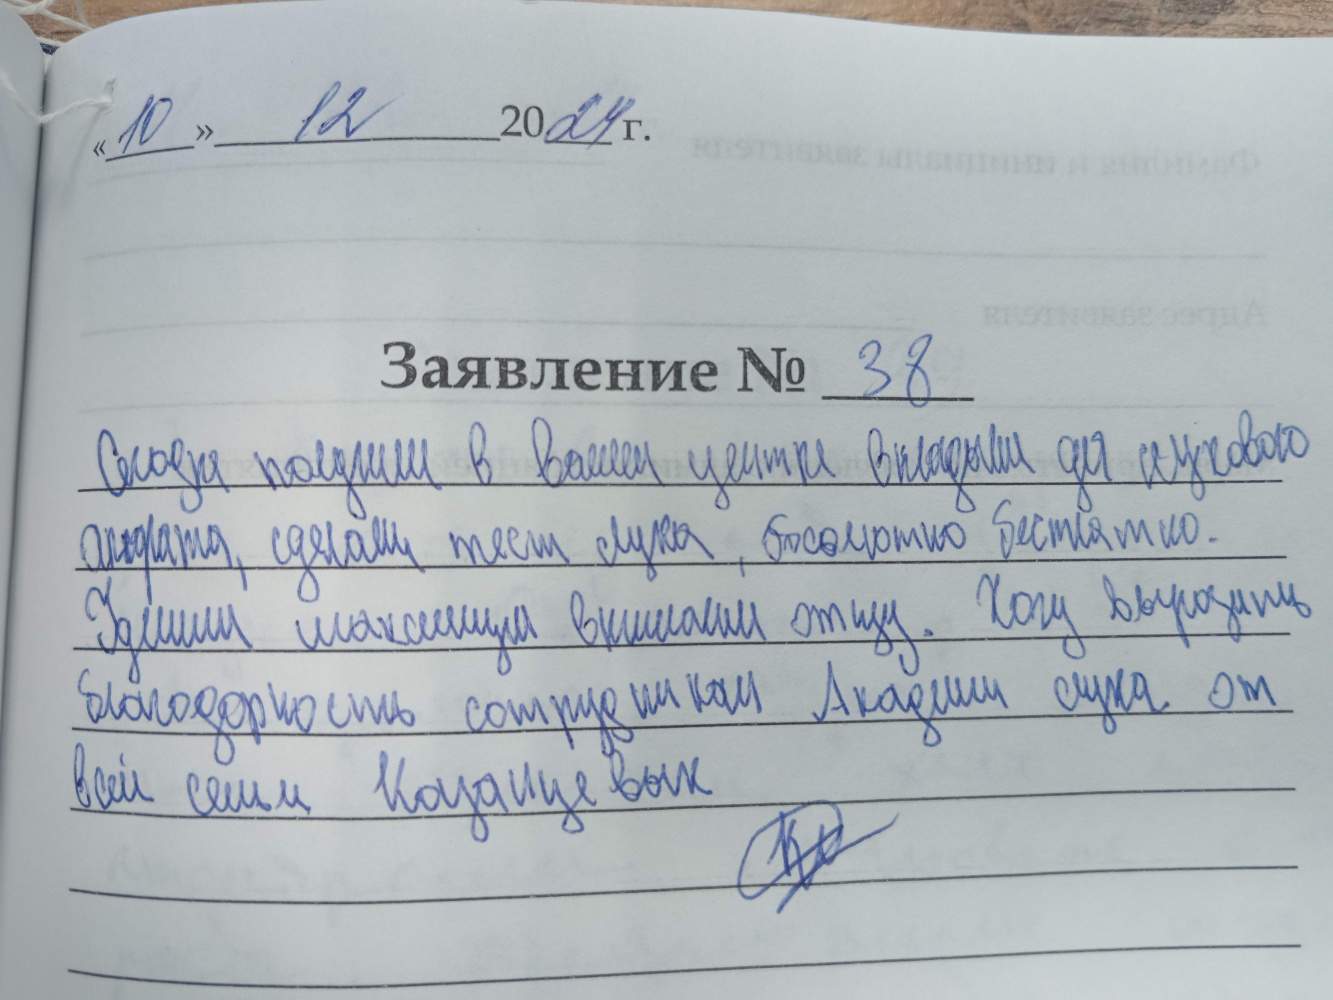 «10» 12 2024 г.
Заявление № 38
Сегодня получили в вашем центре вкладыши для слухового
аппарата, сделали тест слуха, абсолютно бесплатно.
Уделили максимум внимания отцу. Хочу выразить
благодарность сотрудникам Академии слуха от
всей семьи Казанцевых